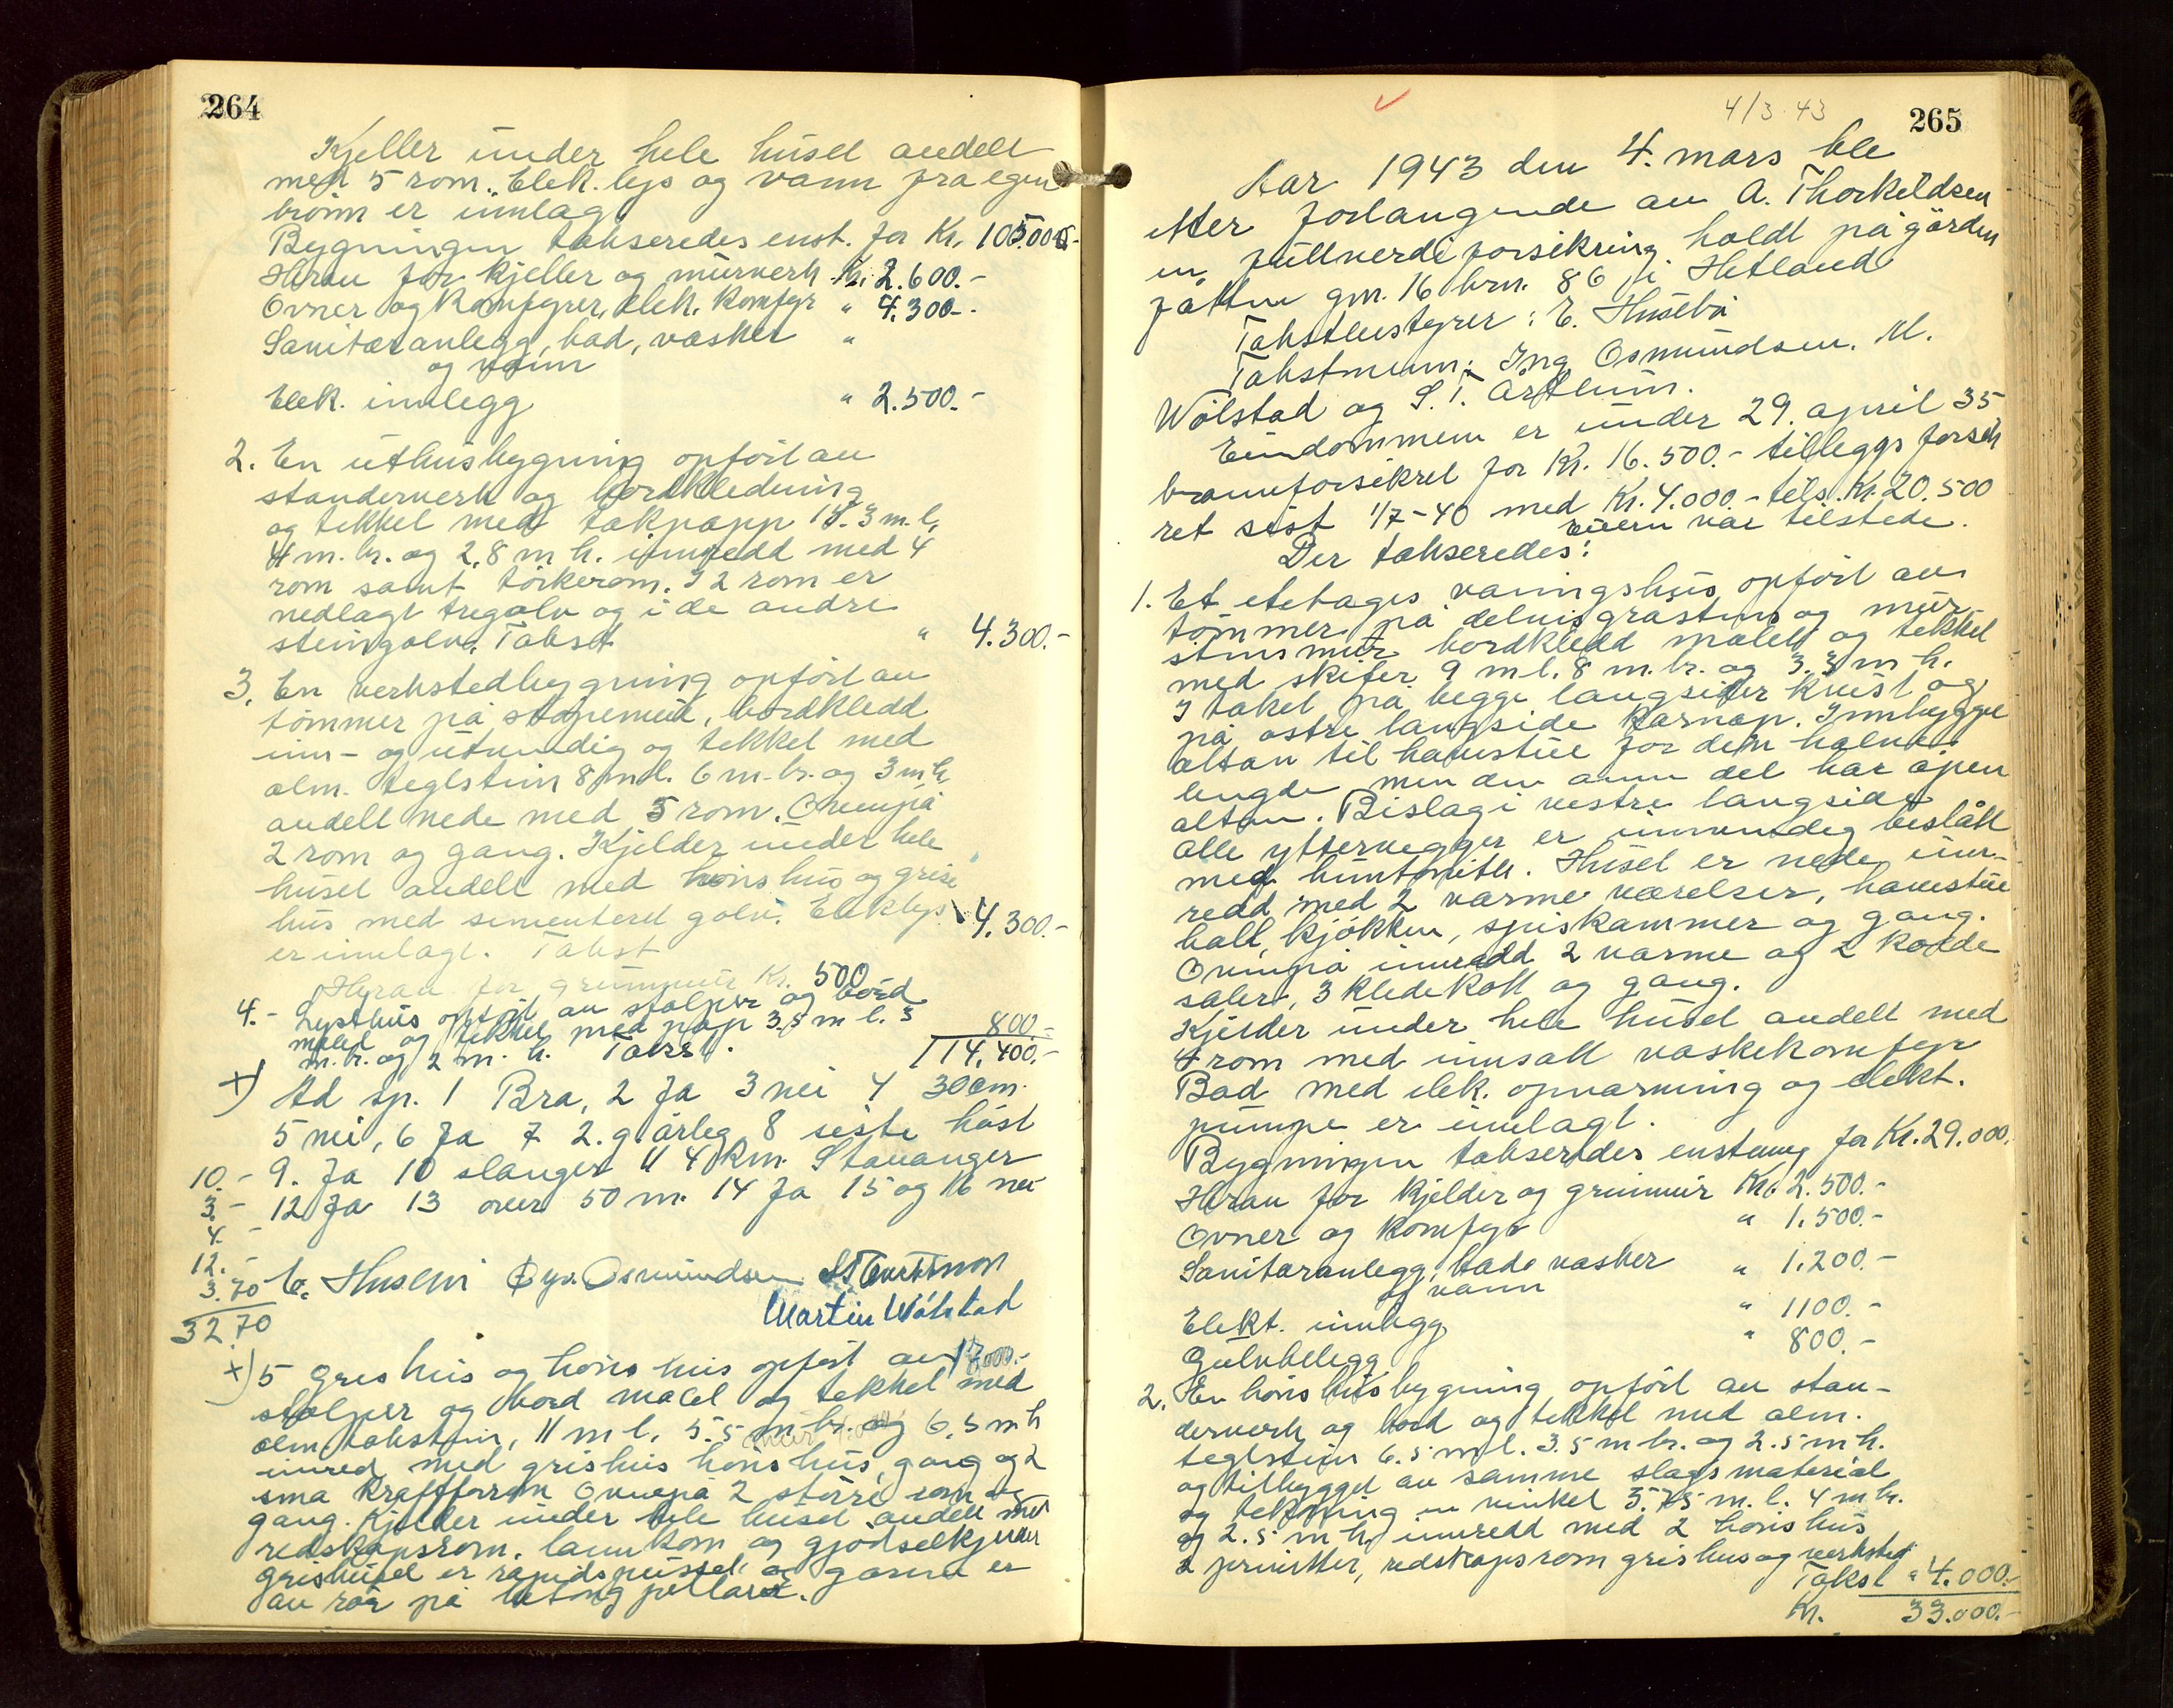 264
Kjeller under hele huset andelt
med 5 rom. Elek. lys og vann fra egen
brönn er innlag
Bygningen takseredes enst. for Kr. 105.000.-
Herav for kjeller og murverk Kr. 2.600.-
Ovner og Komfyrer, elek. Komfyr " 4.300.-
Sanitæranlegg, bad, vasker "
og vann
Elek. innlegg " 2.500.-
2. En uthusbygning opfört av
standerverk og bordkledning
og tekket med takpapp 18.3 m. l.
4 m. br. og 2,8 m h. innredd med 4
rom samt törkerom. I 2 rom er
nedlagt tregolv og i de andre
steingolv. Takst " 4.300.-
3. En verkstedbygning opfört av
tömmer på stöpemur, bordkledd
inn- og utvendig og tekket med
alm. teglstein 8 m l. 6 m. br. og 3 m h
andelt nede med 5 rom. Ovenpå
2 rom og gang. Kjelder under hele
huset andelt med hönshus og grise
hus med sementeret golv. Elek lys
er innlagt. Takst " 4.300.-
Herav for grunnmur Kr. 500
4.- Lysthus opfört av stolper og bord
malet og tekket med pap 3.5 m l. 3
m. br. og 2 m. h. Takst. 800.-
114.400.-
x) Ad sp. 1 Bra, 2 Ja 3 nei 4 30 cm.
5 nei, 6 Ja 7 2. g. årleg 8 siste höst
10.- 9. Ja 10 slanger 11 4 km. Stavanger
3.- 12 Ja 13 over 50 m. 14 Ja 15 og 16 nei
4.-
12.-
3.70 E. Husebö Osmundsen
32.70 Martin Wölstad
x) 5 Gris hus og höns hus opfört av
stolper og bord malet og tekket med
alm. takstein, 11 m l. 5.5 m br. og 6,5 m h
innred med grishus hönshus, gang og 2
små kraftforrom Ovenpå 2 större rom og
gang. Kjelder under hele huset andelt med
redskapsrom. lann kom og gjödselkjeller
grishuset er rapidspusset og gasen er
av rör på betong pellarer.
4/3 43
265
Aar 1943 den 4. mars ble
etter forlangende av A. Thorkeldsen
en fullverdi forsikring holdt på gården
Jåttun gnr. 16 brn. 86 i Hetland
Takstbestyrer: E. Husebö
Takstmenn: Ing Osmundsen. M.
Wölstad og S. T.
Eiendommen er under 29. april 35
brannforsikret for Kr. 16.500.- tilleggs forsik
ret sist 1/7-40 med Kr. 4.000.- tils. Kr. 20.500
Eieren var tilstede.
Der takseredes:
1. Et etetages våningshus opfört av
tömmer på delvis gråstens og mur
stens mur bordkledd malet og tekket
med skifer 9 m l. 8 m. br. og 3.3 m h.
I taket på begge langsider kvist og
på östre langside Karnap. Innbygget
altan til havestue for den halve
lengde men den annen del har åpen
altan. Bislag i vestre langside
Alle yttervegger er innvendig beslått
med huntonitt. Huset er nede inn-
redd med 2 varme værelser, havestue
hall, kjökken, spiskammer og gang.
Ovenpå innredd 2 varme og 2 kolde
saler, 3 kledekott og gang.
Kjelder under hele huset andelt med
4 rom med innsatt vaskekomfyr
Bad med elek. opvarming og elekt.
pumpe er innlagt.
Bygningen takseredes enstemig for Kr. 29.000.
Herav for kjelder og grunnmur Kr. 2.500.-
Ovner og komfyr " 1.500.-
Sanitæranlegg, bade vasker " 1.200.-
og vann
Elekt. innlegg " 1100.-
Gulvbelegg " 800.-
2. En höns husbygning opfört av stan-
derverk og bord og tekket med alm.
teglstein 6.5 m l. 3.5 m br. og 2.5 m h.
og tilbygget av samme slags material
og tekkning en vinkel 3.75 m. l. 4 m br.
og 2.5 m h. innredd med 2 hönshus
2 privetter, redskapsrom grishus og verksted
Takst " 4.000.-
Kr. 33.000.-